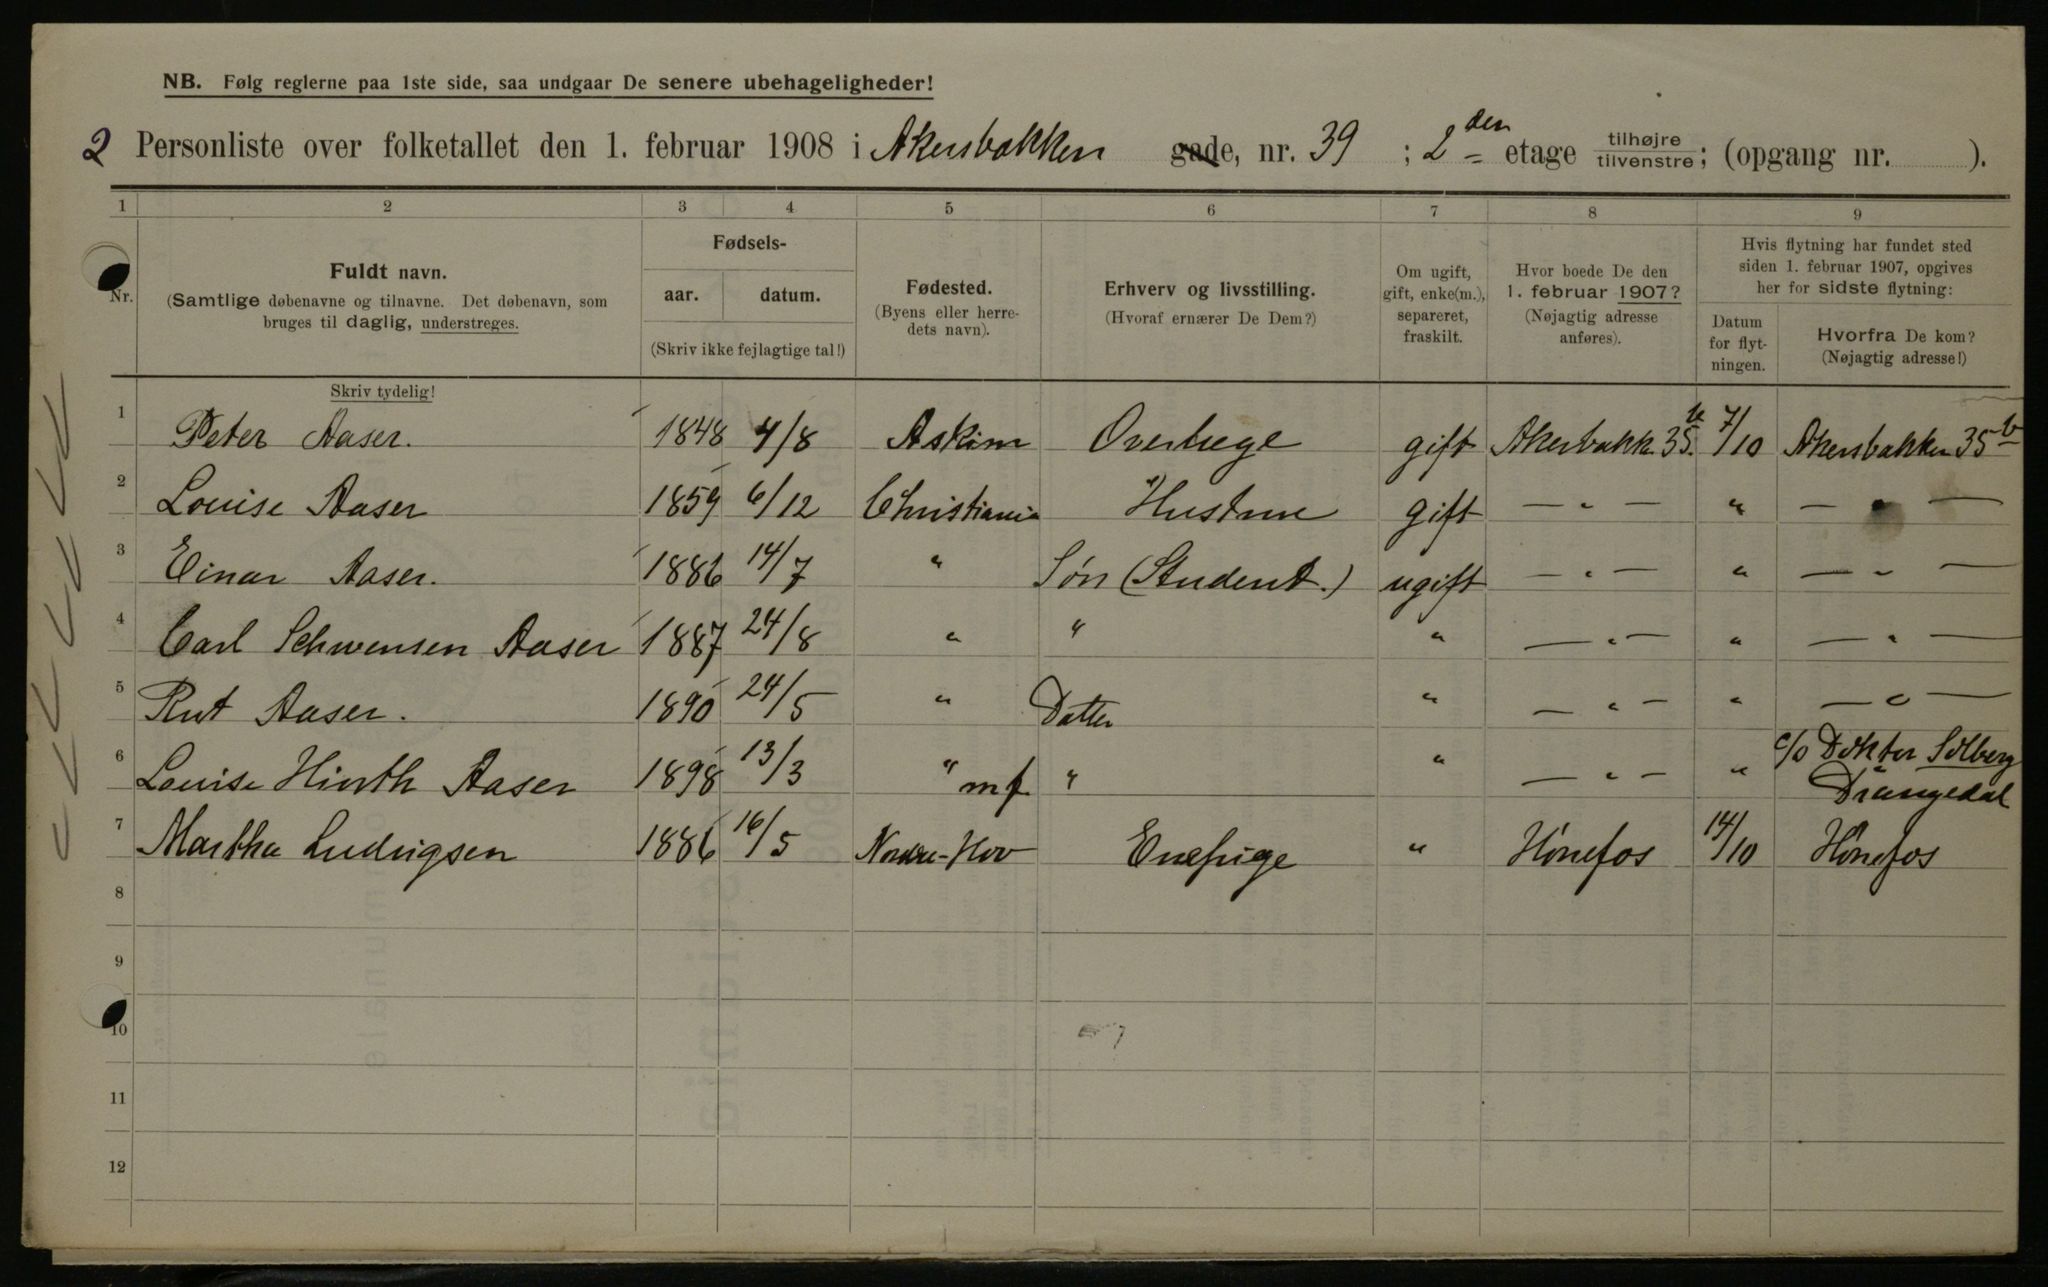 NB. Følg reglerne paa 1ste side, saa undgaar De senere ubehageligheder!
2 Personliste over folketallet den 1. februar 1908 i Akersbakken gade, nr. 39 ; 2 den etage tilhøjre tilvenstre; (opgang nr. ).
1 2 3 4 5 6 7 8 9
Nr.
Fuldt navn.
(Samtlige døbenavne og tilnavne. Det døbenavn, som
bruges til daglig, understreges.
Skriv tydelig!
Fødsels-
aar. datum.
(Skriv ikke fejlagtige tal!)
Fødested.
(Byens eller herre-
dets navn).
Erhverv og livsstilling.
(Hvoraf ernærer De Dem?)
Om ugift,
gift, enke(m.),
separeret,
fraskilt.
Hvor boede De den
1. februar 1907?
(Nøjagtig adresse
anføres).
Hvis flytning har fundet sted
siden 1. februar 1907, opgives
her for sidste flytning:
Datum
for flyt-
ningen.
Hvorfra De kom?
(Nøjagtig adresse!)
1 Peter Aaser. 1848 4/8 Askim Overlæge gift Akersbakk. 35 b. 7/10 Akersbakken 35 b
2 Louise Aaser 1859 6/12 Christiania Hustrue gift — " — " — " —
3 Einar Aaser. 1886 14/7 " Søn (Student.) ugift — " — " — " —
4 Carl Schwensen Aaser 1887 24/8 " " " — " — " — " —
5 Rut Aaser. 1890 24/5 " Datter " — " — " — " —
6 Louise Hiorth Aaser 1898 13/3 " mf " " — " — " c/o Doktor Solberg
Drangedal
7 Martha Ludvigsen 1886 16/5 Nordre-Hov Enepige " Hönefos 14/10 Hönefos
8
9
10
11
12